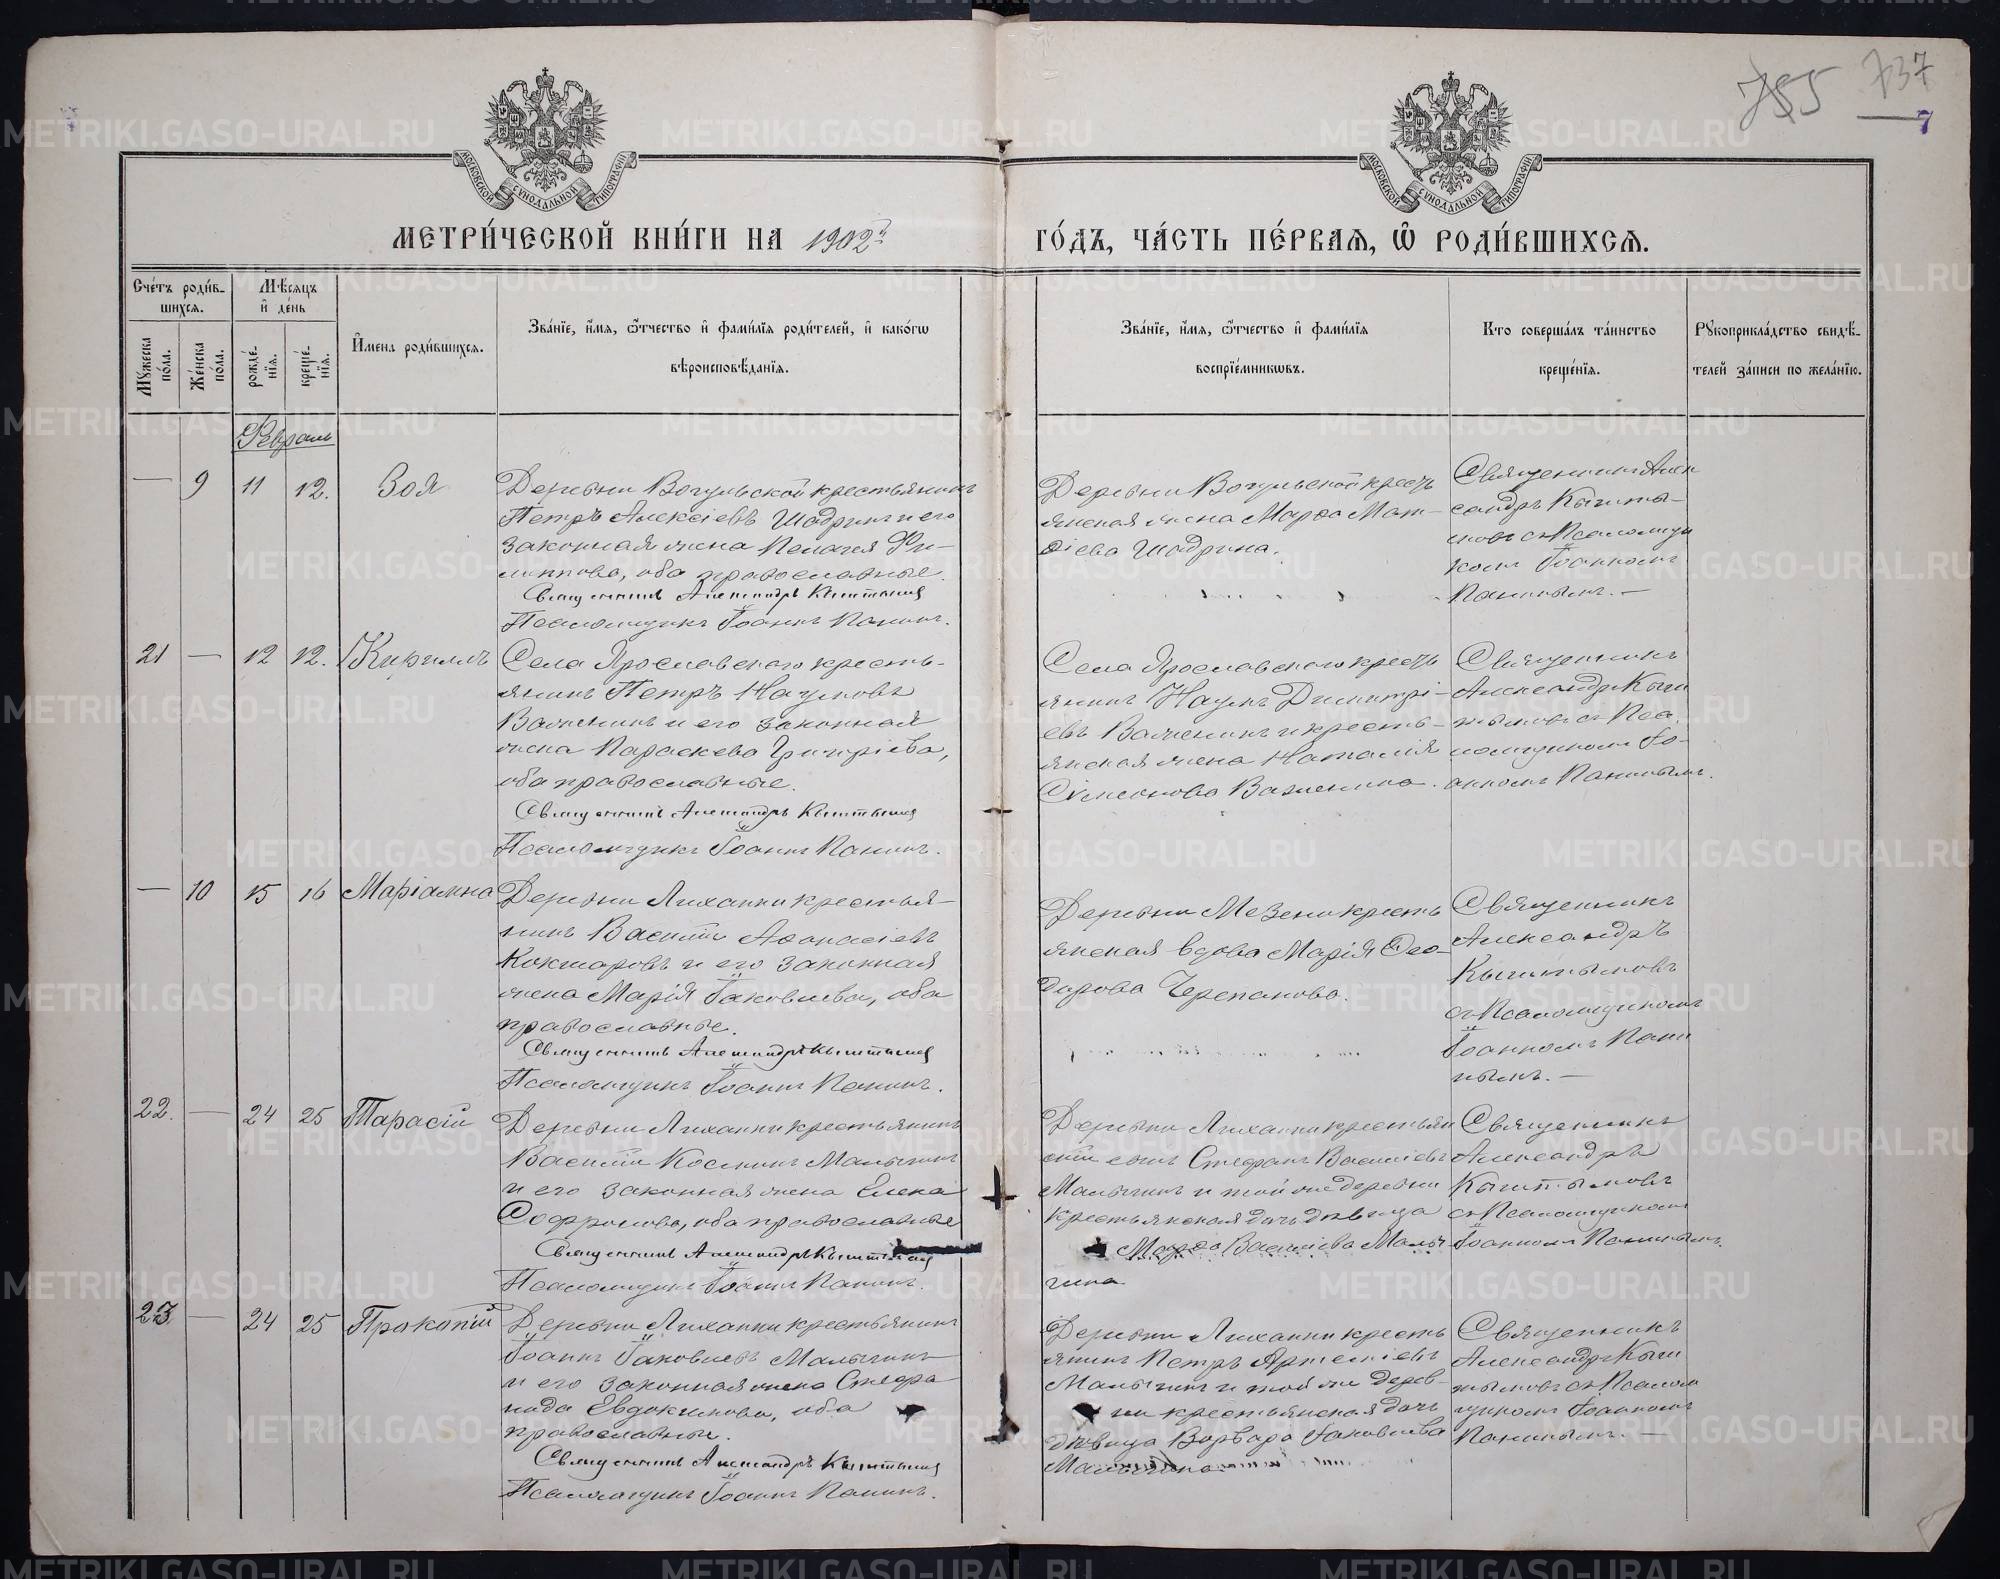 755 737
7
МОСКОВСКОЙ СѴНОДАЛЬНОЙ ТИПОГРАФІИ
МОСКОВСКОЙ СѴНОДАЛЬНОЙ ТИПОГРАФІИ
МЕТРИ́ЧЕСКОЙ КНИ́ГИ НА 1902й ГО́ДЪ, ЧА́СТЬ ПЕ́РВАЯ, Ѽ РОДИ́ВШИХСЯ.
Сче́тъ роди́в-
шихся.
Мꙋжеска по́ла.
Же́нска по́ла.
Мѣ́сяцъ
и҆ де́нь
рожде́нїя.
креще́нїя.
И҆мена роди́вшихся.
Зва́нїе, и҆́мя, ѻ҆́тчество и҆ фами́лїя роди́телей, и҆ како́гѡ
вѣроисповѣ́данїя.
Зва́нїе, и҆́мя, ѻ҆́тчество и҆ фами́лїя
воспрїе́мникѡвъ.
Кто соверша́лъ та́инство
креще́нїя.
Рꙋкоприкла́дство свидѣ́-
телей за́писи по жела́нїю.
Февраль
— 9 11 12. Зоя
Деревни Вогульской крестьянинъ
Петръ Алексіевъ Шадринъ и его
законная жена Пелагея Фи-
липпова, оба православные.
Священникъ Александръ Кыштымов
Псаломщикъ Іоаннъ Панинъ.
Деревни Вогульской кресть
янская жена Марѳа Мат-
ѳіева Шадрина.
Священникъ Алек
сандръ Кышты-
мовъ съ Псаломщи
комъ Іоанномъ
Панинымъ. —
21 — 12 12. Кириллъ
Села Ярославского кресть-
янинъ Петръ Наумовъ
Важенинъ и его законная
жена Параскева Григоріева,
оба православные.
Священникъ Александръ Кыштымов
Псаломщикъ Іоаннъ Панинъ.
Села Ярославского кресть
янинъ Наумъ Димитрі-
евъ Важенинъ и кресть-
янская жена Наталія
Сѵмеонова Важенина.
Священникъ
Александръ Кыш
тымовъ съ Пса
ломщикомъ Іо-
анномъ Панинымъ.
— 10 15 16 Маріамна
Деревни Луханки крестья-
нинъ Василій Аѳанасіевъ
Кокшаровъ и его законная
жена Марія Іаковлева, оба
православные.
Священникъ Александръ Кыштымов
Псаломщикъ Іоаннъ Панинъ.
Деревни Мезени кресть
янская вдова Марія Ѳео-
дорова Черепанова.
Священникъ
Александръ
Кыштымовъ
съ Псаломщикомъ
Іоанномъ Пани
нымъ. —
22. — 24 25 Тарасій
Деревни Луханки крестьянинъ
Василій Косминъ Малыгинъ
и его законная жена Елена
Софронова, оба православные
Священникъ Александръ Кыштымов
Псаломщикъ Іоаннъ Панинъ.
Деревни Луханки крестьян
скій сынъ Стефанъ Василіевъ
Малыгинъ и той же деревни
крестьянская дочь дѣвица
Марѳа Василіева Малы
гина
Священникъ
Александръ
Кыштымовъ
съ Псаломщикомъ
Іоанномъ Панинымъ.
23 — 24 25 Прокопій
Деревни Луханки крестьянинъ
Іоаннъ Іаковлевъ Малыгинъ
и его законная жена Стефа
нида Евдокимова, оба
православные.
Священникъ Александръ Кыштымов
Псаломщикъ Іоаннъ Панинъ.
Деревни Луханки кресть
янинъ Петръ Артеміевъ
Малыгинъ и той же дерев-
ни крестьянская дочь
дѣвица Варвара Іаковлева
Малыгина
Священникъ
Александръ Кыш
тымовъ съ Псалом
щикомъ Іоанномъ
Панинымъ. —
METRIKI.GASO-URAL.RU